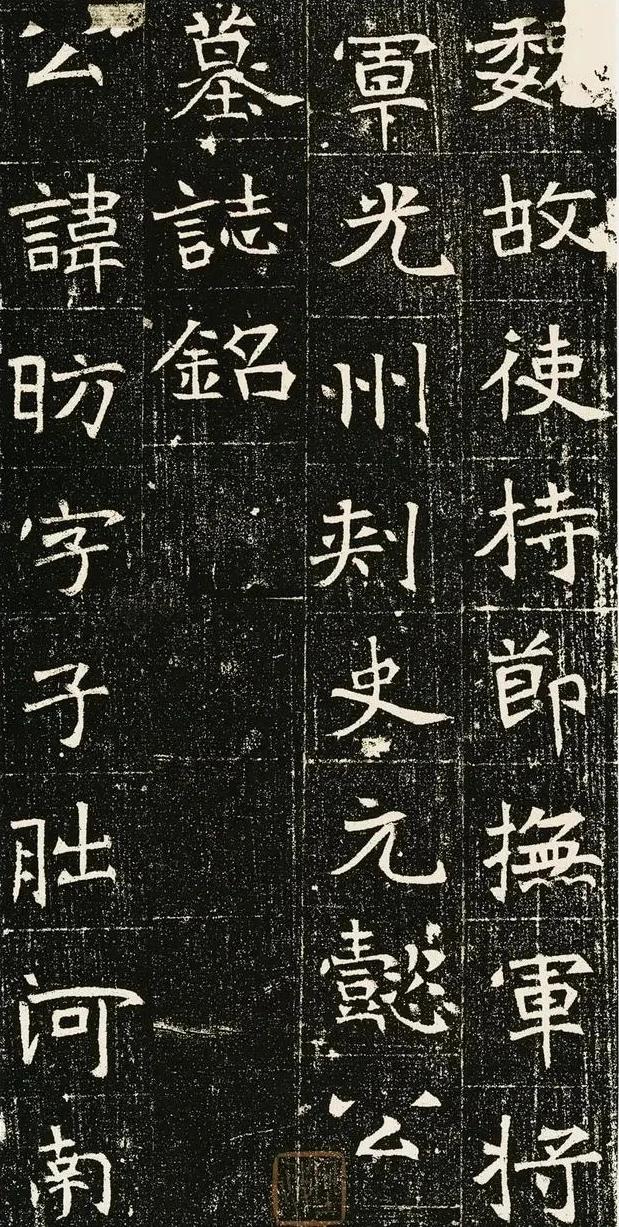 魏故使持節撫軍将
軍光州刺史元懿公
墓誌銘
公諱昉字子朏河南